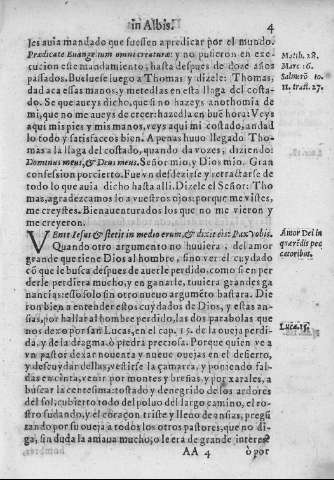 in Albis.
4
les auia mandado que fuessen a predicar por el mundo.
Prædicate Euangelium omni creaturæ: y no pusieron en execu-
cion este mandamiento, hasta despues de doze años
passados. Buelue se luego a Thomas y dizele: Thomas,
dad aca essas manos, y metedlas en esta llaga del costa-
do. Se que aueys dicho, que si no hazeys anothomia de
mi, que no me aueys de creer: hazedla en bué hora: Veys
aqui mis pies y mis manos, veys aqui mi costado, andad
lo todo y satisfazeros bien. Apenas huuo llegado Thomas
a la llaga del costado, quando da vozes, diziendo:
Dominus meus, & Deus meus. Señor mio, y Dios mio. Gran
confession por cierto. Fue vn desdezirse y retractarse de
todo lo que auia dicho hasta alli. Dizele el Señor: Tho-
mas, agradezcamos lo a vuestros ojos: porque me vistes,
me creystes. Bienauenturados los que no me vieron y
me creyeron.
Venit Iesus & stetit in medio eorum, & dixit eis: Pax vobis.
Quando otro argumento no huuiera, del amor
grande que tiene Dios al hombre, sino ver el cuydado
có que le busca despues de auerle perdido, como si en per
derle perdiera mucho, y en ganarle, tuuiera grandes ga
nancias: este solo sin otro nueuo argumēto bastara. Die
ron bien a entender estos cuydados de Dios, y estas an-
sias, por hallar al hombre perdido, las dos parabolas que
nos dexo por san Lucas, en el cap. 15. de la oueja perdi-
da, y de la dragma, ò piedra preciosa. Porque quien ve a
vn pastor dexar nouenta y nueue ouejas en el desierto,
y descuydar dellas, vestirse la çamarra, y poniendo fal-
das en cinta, venir por montes y breñas, y por xarales, a
buscar la centesima: tostado y denegrido de los ardores
del sol, cubierto todo del poluo del largo camino, el ro-
stro sudando, y el coraçon triste y lleno de ansias, pregū
zando por su oueja a todos los otros pastores, que no di-
ga, sin duda la amaua mucho, o le era de grande interes
AA 4
ò por
Matth. 28.
Marc. 16.
Salmerō to.
11. trast. 27.
Amor Dei in
quærēdis pec
catoribus.
Luca. 15.